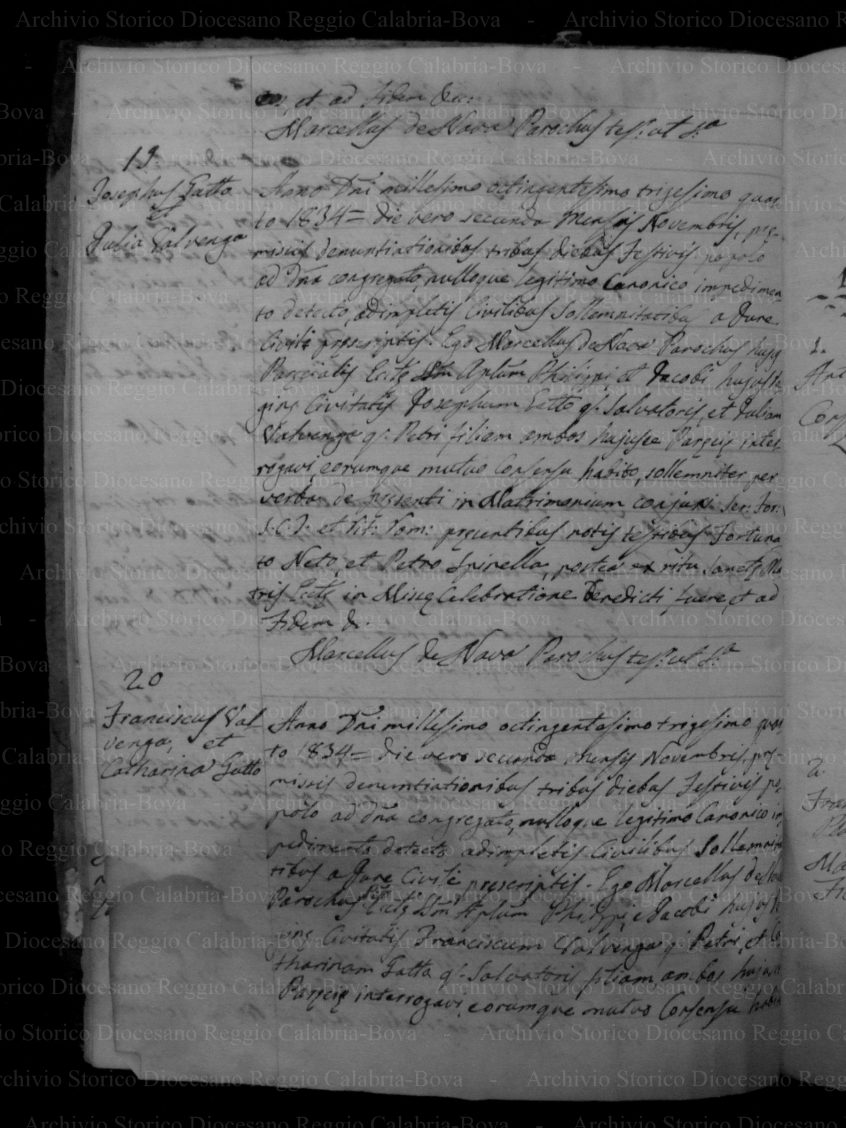 et ad Fidem &a:
Marcellus de Nava Parochus test: ut s.a
19.
Josephus Gatto
et
Julia Valvenga
Anno Dni millesimo octingentesimo trigesimo quar
to 1834= die vero secunda Mensis Novembris, pre-
missis denuntiationibus tribus diebus Festivis popolo
ad Dna congregato, nulloque legitimo Canonico impedimen
to detecto, adimpletis Civilibus Sollemnitatibus a Jure
Civili prescriptis. Ego Marcellus de Nava Parochus hujq
Parcialis Eccle Aplum Philippi, et Jacobi hujus Re
gins Civitatis Josephum Gatto q: Salvatoris et Juliam
Valvenga q: Petri filiam ambos hujusce inter
rogavi, eorumque mutuo Consensu habito, sollemniter per
verba de presenti in Matrimonium conjunxi ser: for:
S.C.T. et Rit: Rom: presentibus notis testibus Fortuna
to Neto, et Petro Spinella, postea ex ritu Sancte Ma
tris Eccle in Misse Celebratione Benedicti fuere, et ad
Fidem &.
Marcellus de Nava Parochus test: ut s.a
20
Franciscus Val
venga, et
Catharina Gatto
Anno Dni millesimo octingentesimo trigesimo quar
to 1834= die vero secunda Mensis Novembris, pre
missis denuntiationibus tribus diebus Festivis po
polo ad Dna congregato, nulloque legitimo Canonico im
pedimento detecto adimpletis Civilibus Sollemnita
tibus a Jure Civili prescriptis. Ego Marcellus de Nava
Parochus Eccle Aplum Philippi, e Jacobi hujus R
gins Civitatis Franciscum Valvenga q: Petri, et Ca
tharinam Gatto q: Salvatoris filiam, ambos hujus
interrogavi, eorumque mutuo Consensu habito